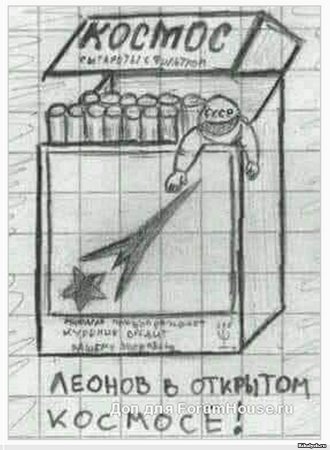 КОСМОС
СЫГАРЕТЫ С ФИЛЬТРОМ
СССР
МИНЗДРАВ ПРЕДУПРЕЖДАЕТ
КУРЕНИЕ ВРЕДИТ
ВАШЕМУ ЗДОРОВЬЮ
ЛЕОНОВ В ОТКРЫТОМ
КОСМОСЕ!
Доп для ForumHouse.ru